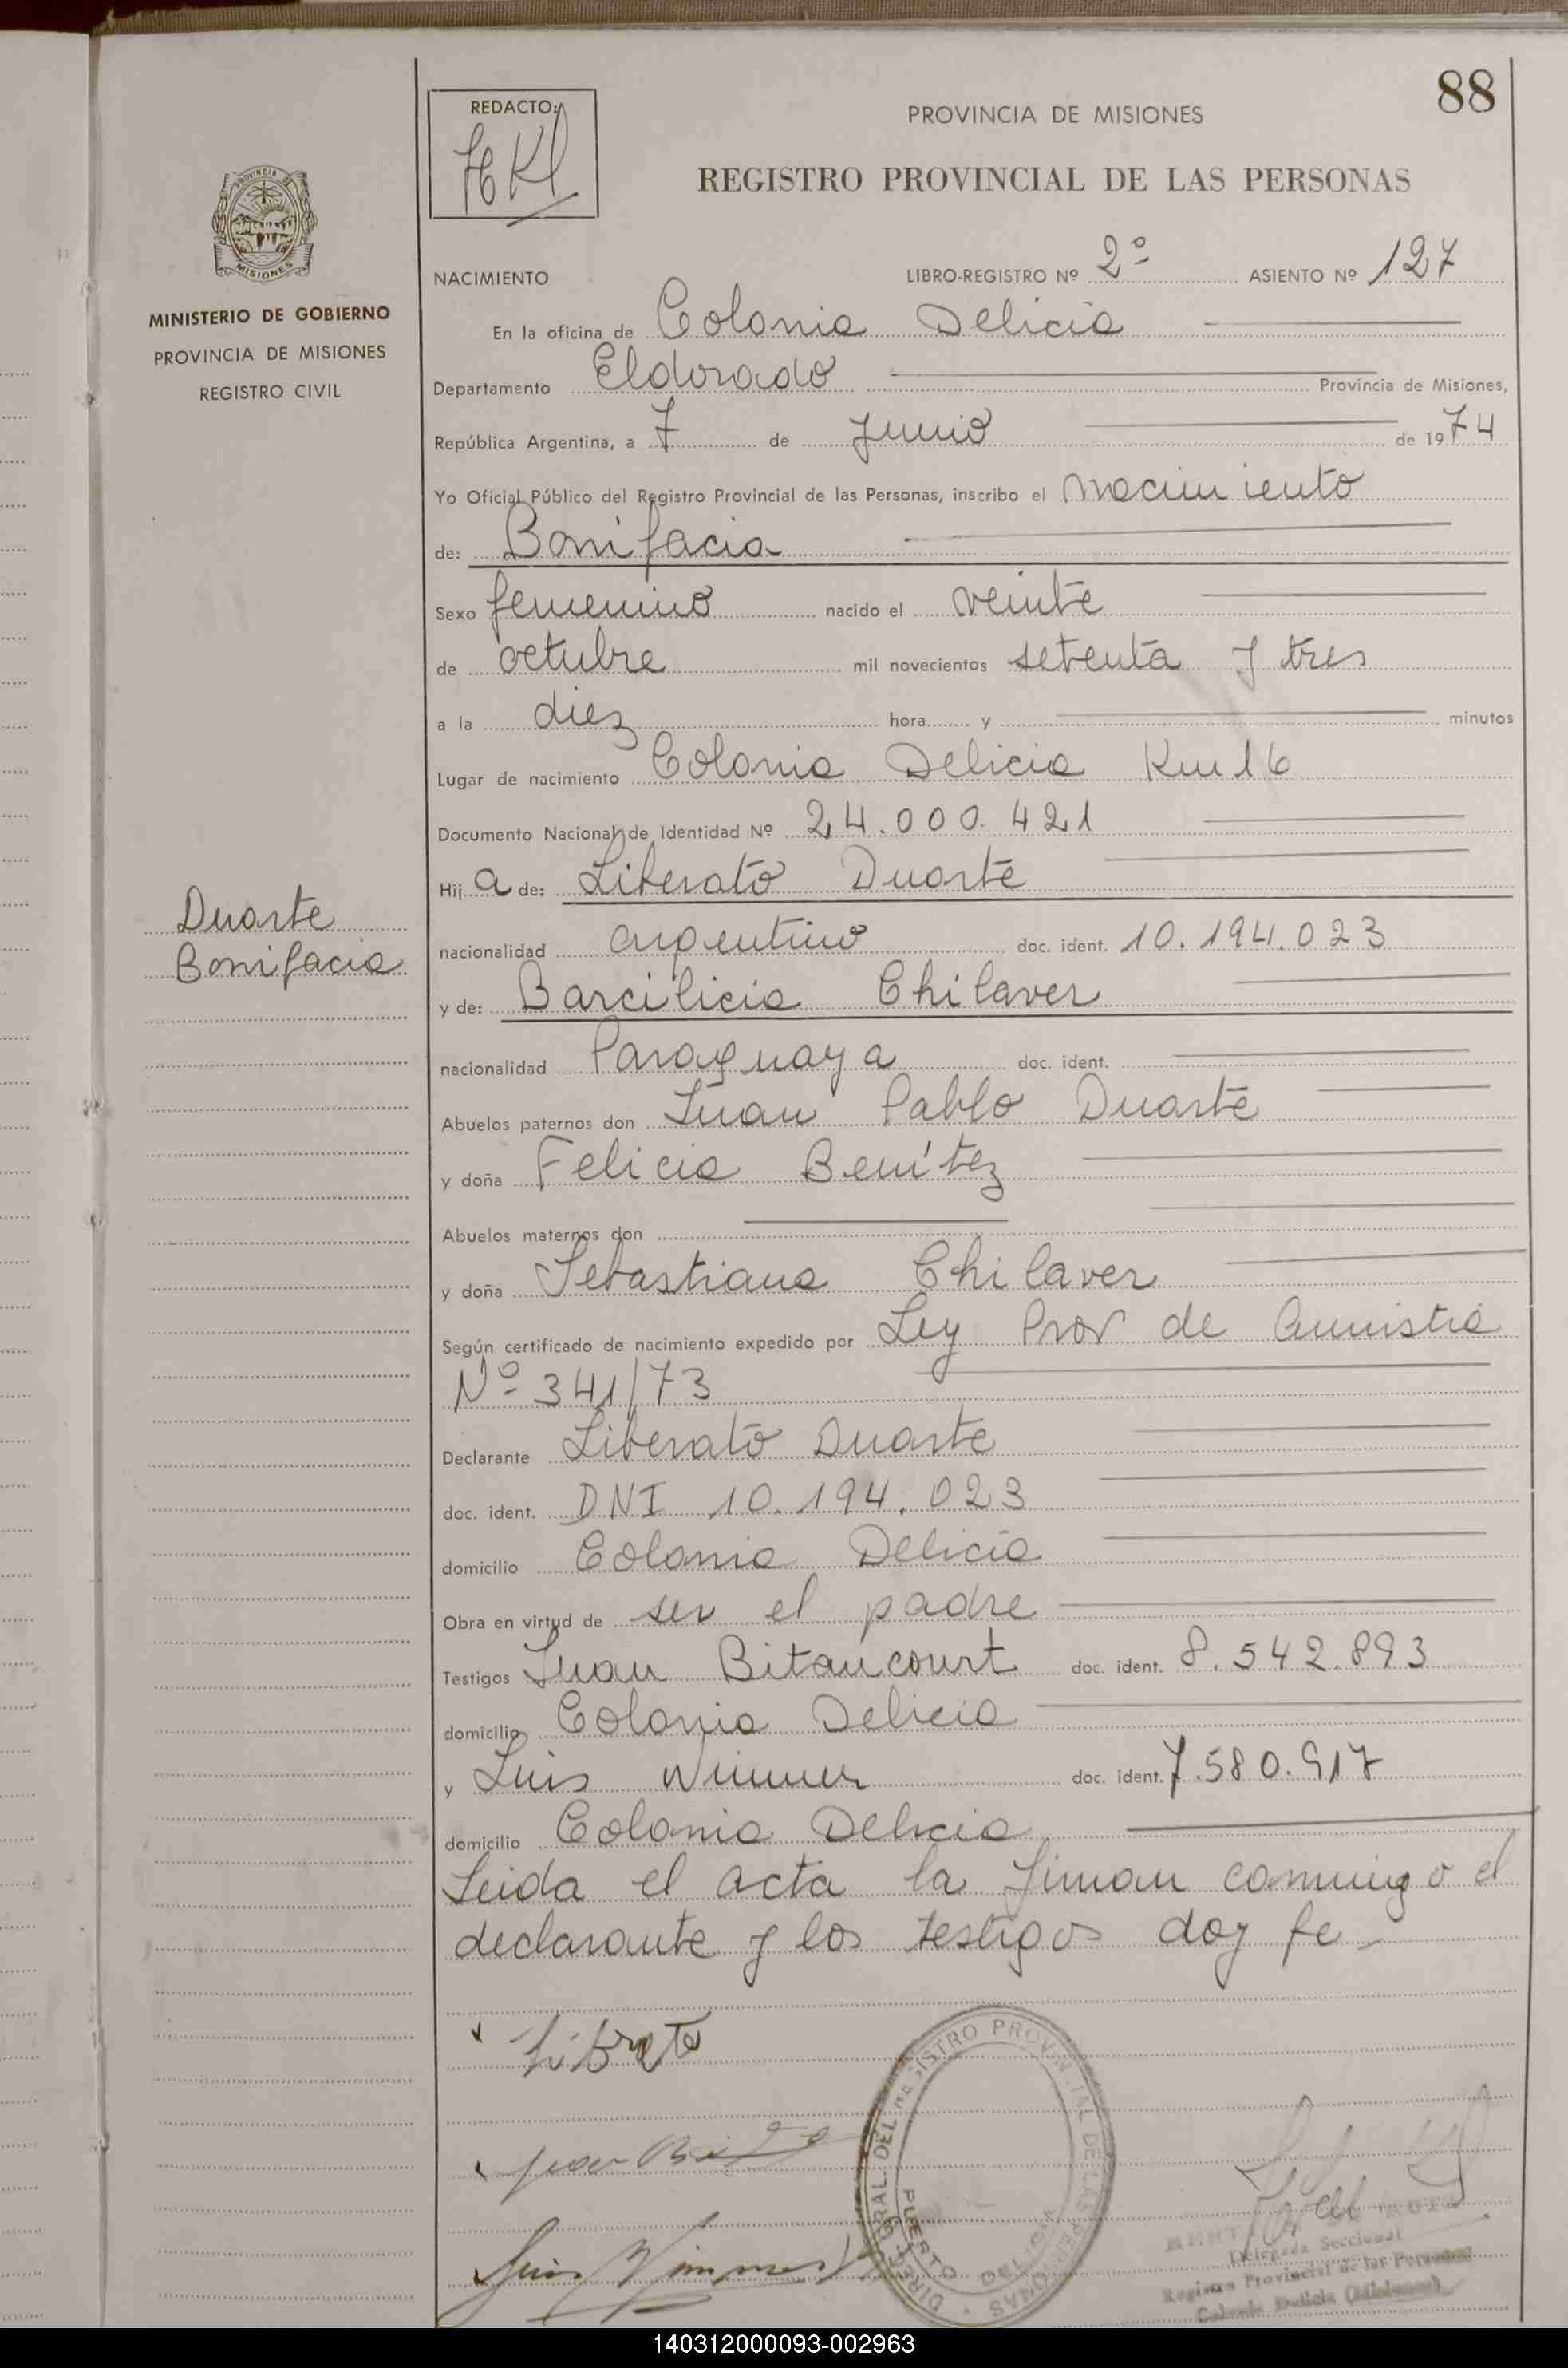 88
REDACTO:
PROVINCIA DE MISIONES
REGISTRO PROVINCIAL DE LAS PERSONAS
PROVINCIA DE
MISIONES
MINISTERIO DE GOBIERNO
PROVINCIA DE MISIONES
REGISTRO CIVIL
NACIMIENTO LIBRO-REGISTRO Nº 2º ASIENTO Nº 127
En la oficina de Colonia Delicia
Departamento Eldorado Provincia de Misiones,
República Argentina, a 7 de Junio de 1974
Yo Oficial Público del Registro Provincial de las Personas, inscribo el nacimiento
de: Bonifacia
Sexo femenino nacido el veinte
de octubre mil novecientos setenta y tres
a la diez hora y minutos
Lugar de nacimiento Colonia Delicia Km 16
Documento Nacional de Identidad Nº 24.000.421
Hij a de: Liberato Duarte
Duarte
Bonifacia
nacionalidad argentino doc. ident. 10.194.023
y de: Barcilicia Chilaver
nacionalidad Paraguaya doc. ident.
Abuelos paternos don Juan Pablo Duarte
y doña Felicia Benítez
Abuelos maternos don
y doña Sebastiana Chilaver
Según certificado de nacimiento expedido por Ley Prov de Amnistia
Nº 341/73
Declarante Liberato Duarte
doc. ident. DNI 10.194.023
domicilio Colonia Delicia
Obra en virtud de ser el padre
Testigos Juan Bitancourt doc. ident. 8.542.893
domicilio Colonia Delicia
y Luis Wimmer doc. ident. 7.580.917
domicilio Colonia Delicia
Leida el acta la firman conmigo el
declarante y los testigos doy fe.
DIREC. GRAL. DEL REGISTRO PROVINCIAL DE LAS PERSONAS
PUERTO DELICIA
Juan
Luis Wimmer
Delegada Seccional
Registro Provincial de las Personas
Colonia Delicia (Misiones)
140312000093-002963